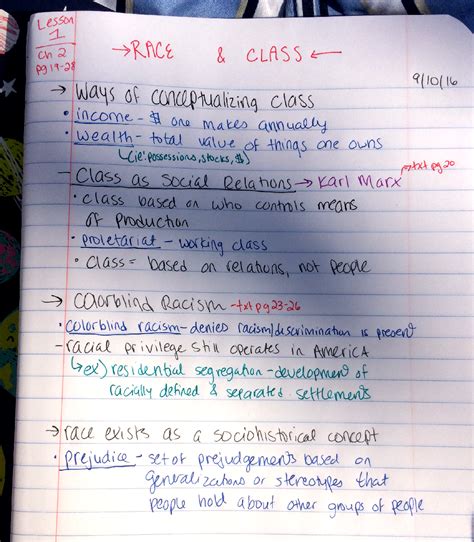 Lesson
1
Ch 2
pg 19-28
→RACE & CLASS←
9/10/16
→ Ways of conceptualizing class
• income - $ one makes annually
• wealth - total value of things one owns
↳(ie: possessions, stocks, $)
- Class as Social Relations → Karl Marx txt pg 20
• class based on who controls means
of production
• proletariat - working class
• class = based on relations, not people
→ Colorblind Racism - txt pg 23-26
• colorblind racism - denies racism/discrimination is present
- racial privilege still operates in America
↳ex) residential segregation - development of
racially defined & separated settlements
→ race exists as a sociohistorical concept
• prejudice - set of prejudgements based on
generalizations or stereotypes that
people hold about other groups of people